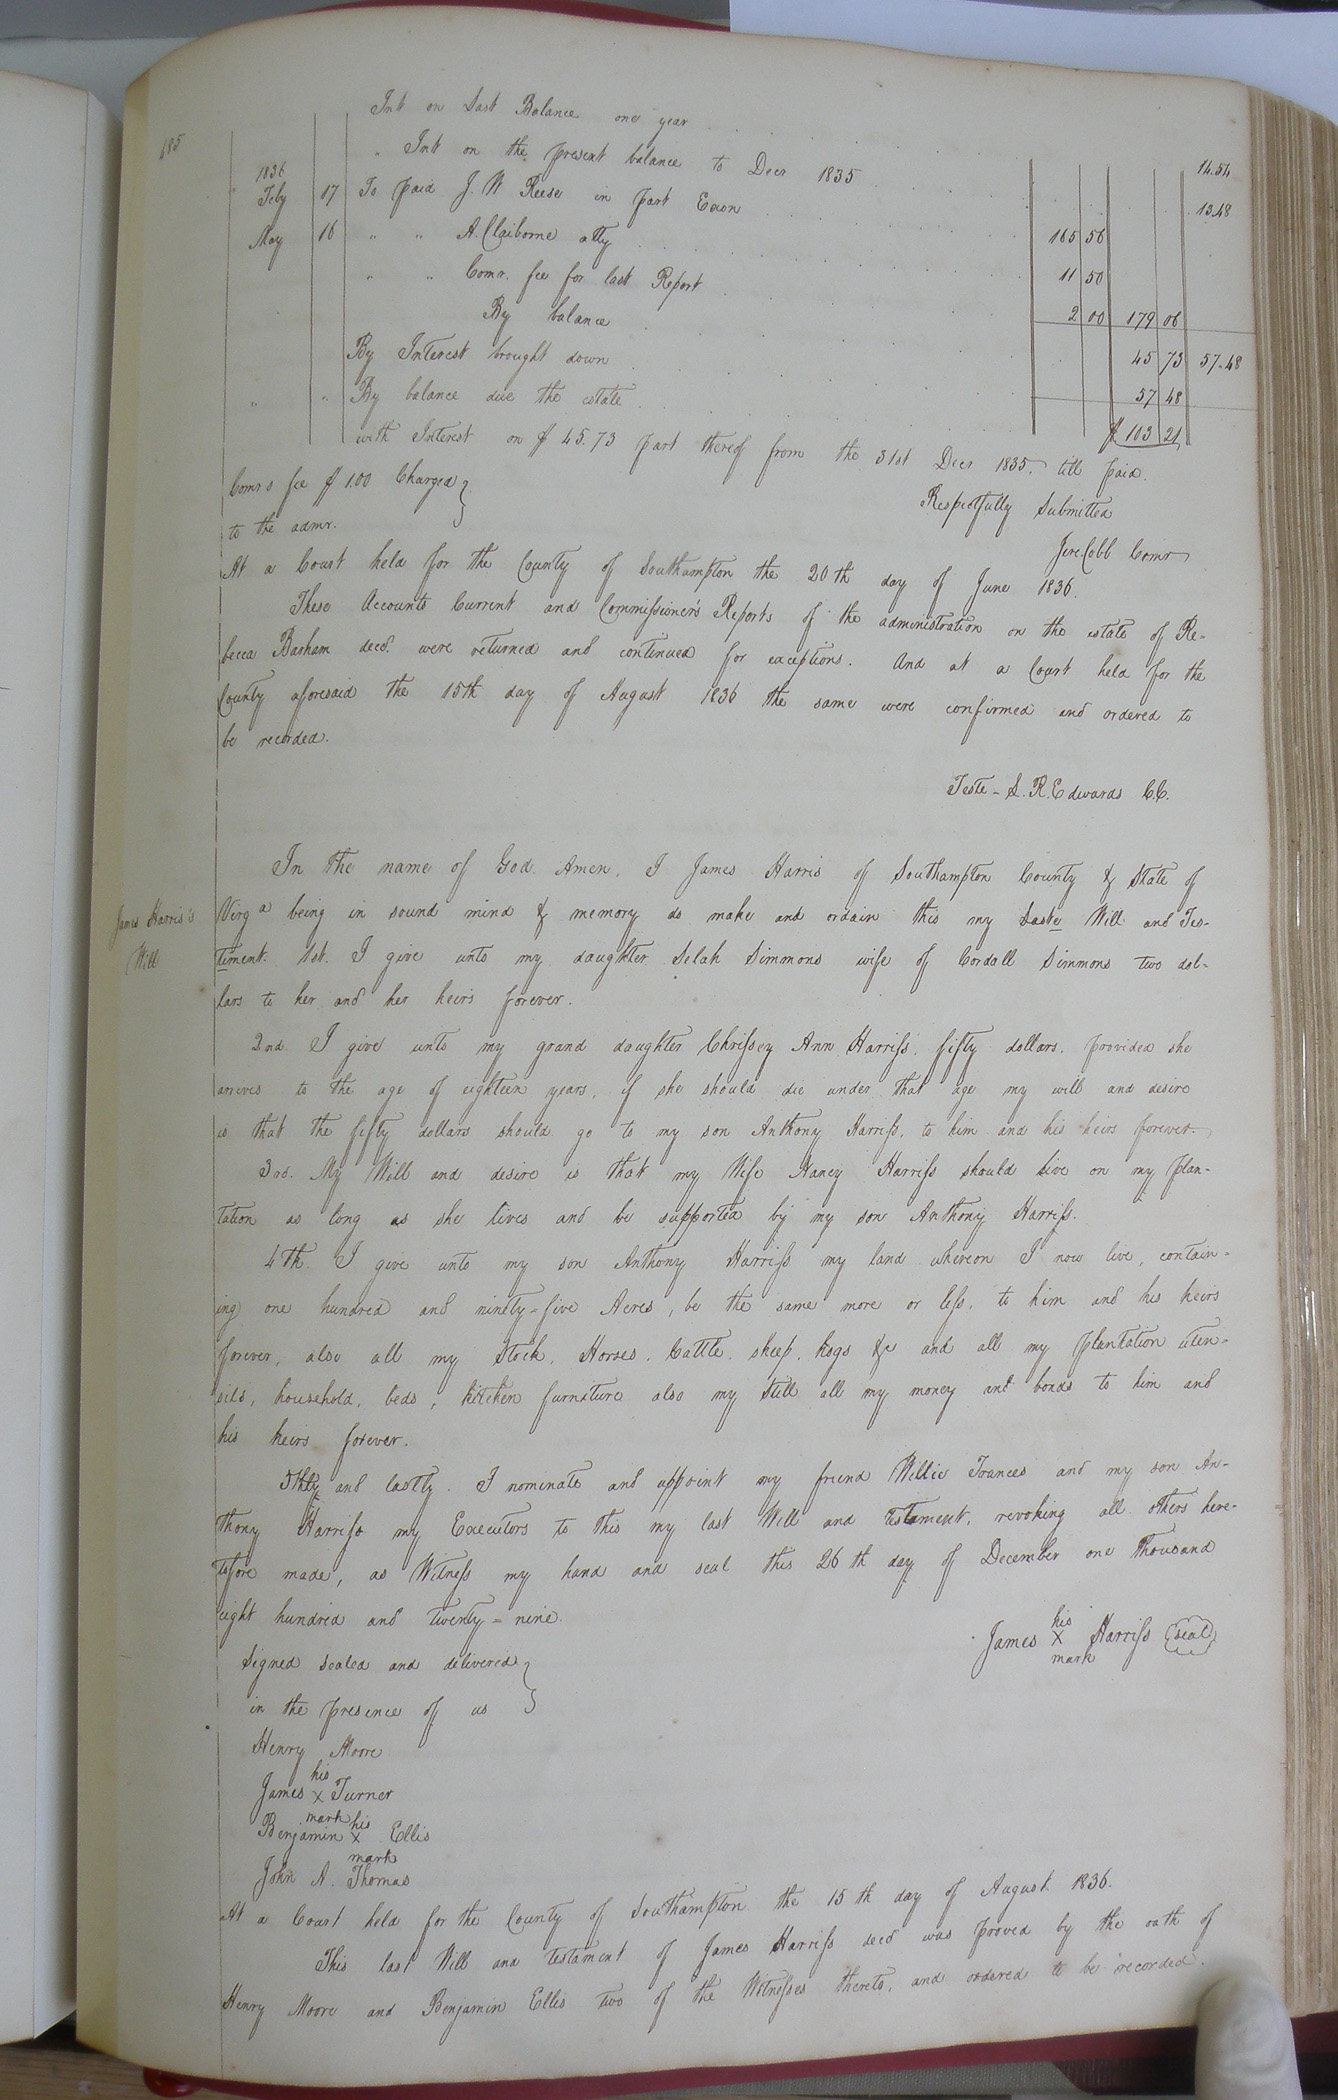 685
Int on Last Balance one year 14.54
" Int on the present balance to Decr 1835 13.48
1836
Feby 17 To paid J. W Reese in part Exon 165 56
May 16 " " A. Claiborne atty 11 50
" " Comr. fee for last Report 2 00 179 06
By balance 45 73 57.48
By Interest brought down 57 48
" " By balance due the estate $ 103 21
with Interest on $ 45.73 part thereof from the 31st Decr 1835. till paid.
Comrs fee $ 1.00 Charged
to the admr.
Respectfully Submitted
Jere. Cobb Comr
At a Court held for the County of Southampton the 20th day of June 1836.
These Accounts Current and Commissioner's Reports of the administration on the estate of Re-
becca Barham decd. were returned and continued for exceptions. And at a Court held for the
County aforesaid the 15th day of August 1836 the same were confirmed and ordered to
be recorded.
Teste - L. R. Edwards C.C.
James Harris's
Will
In the name of God Amen. I James Harris of Southampton County & State of
Virga being in sound mind & memory do make and ordain this my Laste Will and Tes-
timent. 1st. I give unto my daughter Selah Simmons wife of Cordall Simmons two dol-
lars to her and her heirs forever.
2nd. I give unto my grand daughter Chrissey Ann Harriss. fifty dollars. provided she
arrives to the age of eighteen years, if she should die under that age my will and desire
is that the fifty dollars should go to my son Anthony Harriss. to him and his heirs forever.
3rd. My Will and desire is that my Wife Nancy Harriss should live on my plan-
tation as long as she lives and be supported by my son Anthony Harriss.
4th. I give unto my son Anthony Harriss my land whereon I now live, contain-
ing one hundred and ninety=five Acres, be the same more or less, to him and his heirs
forever, also all my Stock, Horses, Cattle, sheep, hogs &c and all my plantation uten-
sils, household, beds, kitchen furniture also my Still all my money and bonds to him and
his heirs forever.
5thly and lastly. I nominate and appoint my friend Willie Frances and my son An-
thony Harriss my Executors to this my last Will and testament, revoking all others here-
tofore made, as Witness my hand and seal this 26th day of December one Thousand
eight hundred and twenty=nine.
James his X mark Harriss (seal)
Signed sealed and delivered
in the presence of us
Henry Moore
James his X mark Turner
Benjamin his X mark Ellis
John A. Thomas
At a Court held for the County of Southampton the 15th day of August 1836.
This last Will and testament of James Harriss decd was proved by the oath of
Henry Moore and Benjamin Ellis two of the Witnesses thereto, and ordered to be recorded.